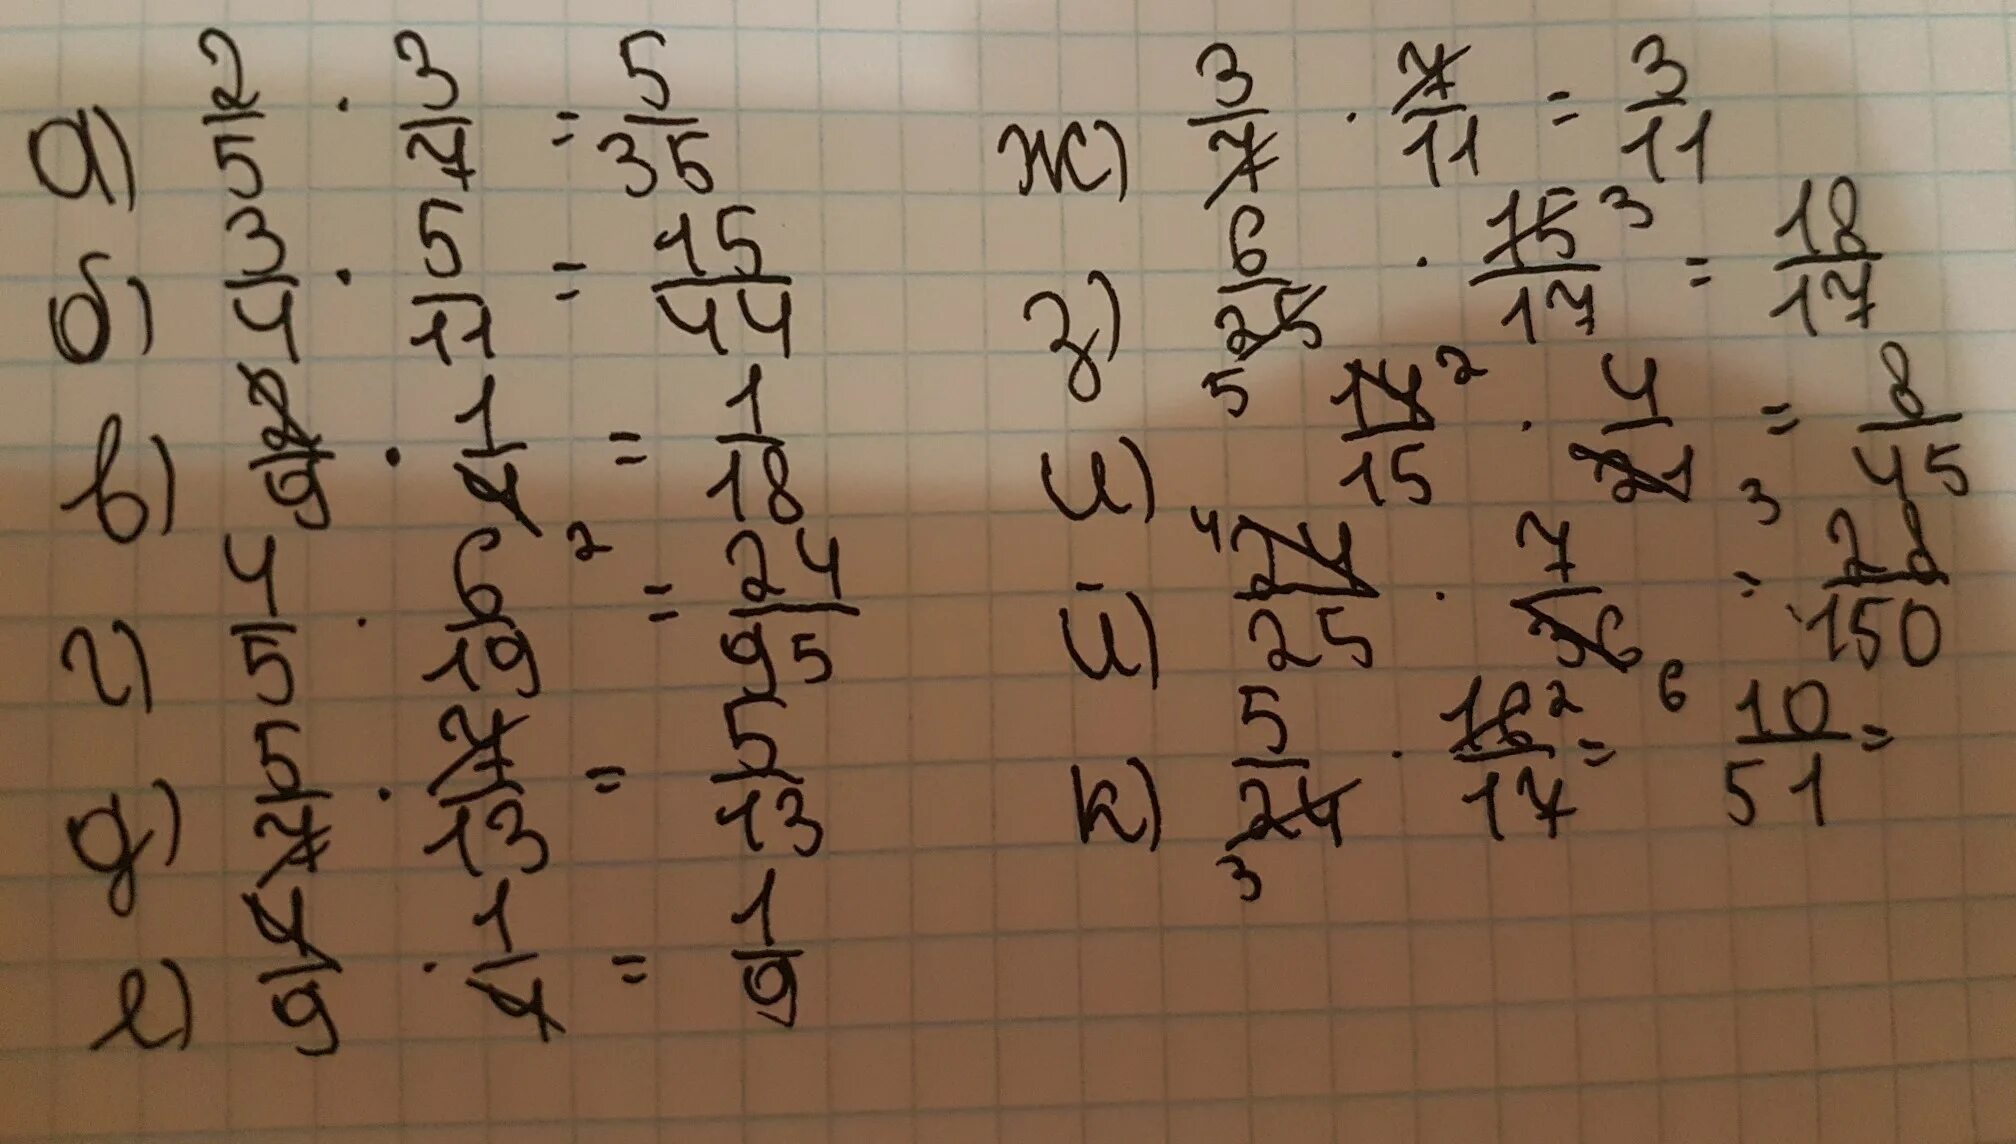 а) 2/5 · 3/7 = 5/35
б) 3/4 · 5/11 = 15/44
в) 2/9 · 1/4 = 1/18
г) 4/5 · 6/19 2 = 24/95
д) 5/7 · 7/13 = 5/13
е) 4/9 · 1/4 = 1/9
ж) 3/7 · 7/11 = 3/11
з) 6/25 5 · 15 3/17 = 18/17
и) 14 2/15 · 4/21 3 = 8/45
й) 4 24/25 · 7/36 6 = 28/150
к) 5/24 3 · 16 2/17 = 10/51 =